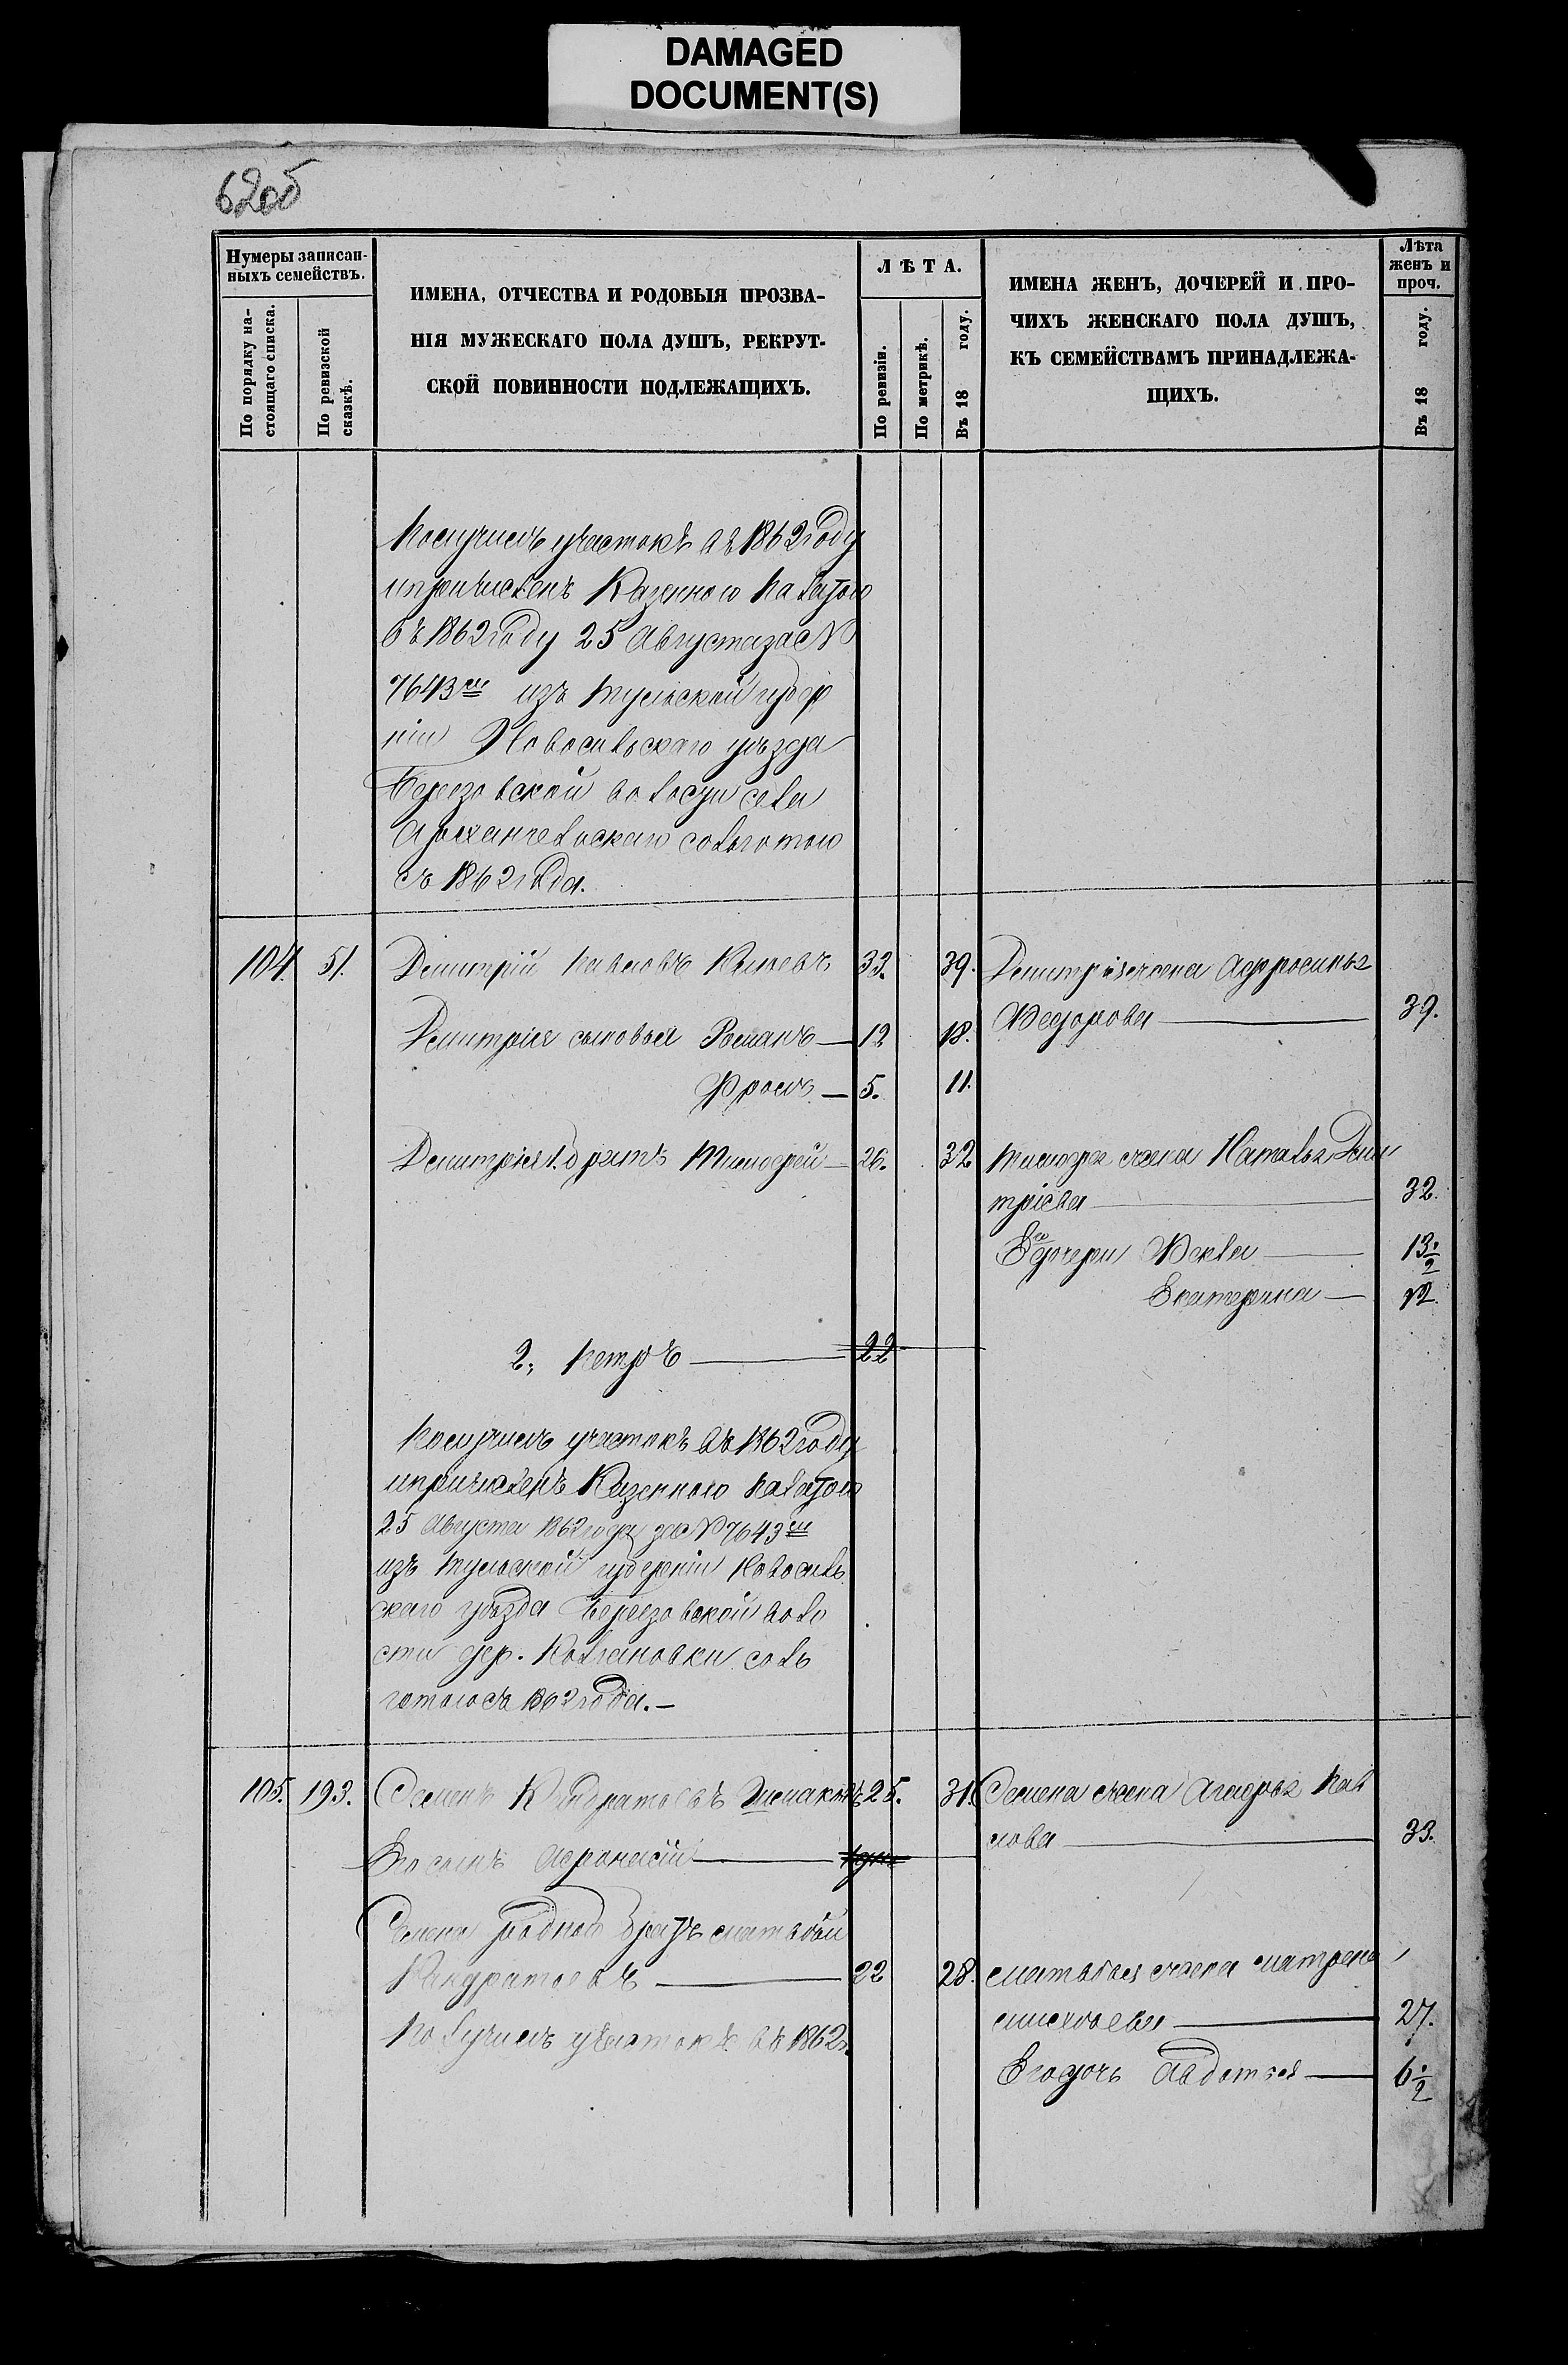 DAMAGED
DOCUMENT(S)
62об
Нумеры записан-
ныхъ семействъ.
По порядку на-
стоящаго списка.
По ревизской
сказкѣ.
ИМЕНА, ОТЧЕСТВА И РОДОВЫЯ ПРОЗВА-
НІЯ МУЖЕСКАГО ПОЛА ДУШЪ, РЕКРУТ-
СКОЙ ПОВИННОСТИ ПОДЛЕЖАЩИХЪ.
ЛѢТА.
По ревизіи.
По метрикѣ.
Въ 18 году.
ИМЕНА ЖЕНЪ, ДОЧЕРЕЙ И ПРО-
ЧИХЪ ЖЕНСКАГО ПОЛА ДУШЪ,
КЪ СЕМЕЙСТВАМЪ ПРИНАДЛЕЖА-
ЩИХЪ.
Лѣта
женъ и
проч.
Въ 18 году.
Получилъ участокъ въ 1862 году
и причисленъ Казенною Палатою
въ 1862 году 25 Августа за №
7643мъ изъ Тульской губер
ніи Новосильскаго уѣзда
Березовской волости села
Архангельскаго со льготою
съ 1862 года.
104. 51. Дмитрій Павловъ 33. 39. Дмитрія жена Афросинья
Федорова 39.
Дмитрія сыновья Романъ 12 18.
Фролъ 5. 11.
Дмитрія 1. братъ Тимофей 26. 32 Тимофея жена Наталья Дми
тріева 32.
Его дочери Фекла 13 1/2
Екатерина 12.
2, Петръ 22
Получилъ участокъ въ 1862 году
и причисленъ Казенною Палатою
25 Августа 1862 года за № 7643мъ
изъ Тульской губерніи Новосиль
скаго уѣзда Березовской воло
сти дер. со ль
готою съ 1862 года.
105. 193. Семенъ Кондратьевъ 25. 31. Семена жена Агафья Пав
лова 33.
Его сынъ Афонасій
Семена родной братъ Матвѣй
Кандратьевъ 22 28. Матвѣя жена Матрена
27.
Его дочь Авдотья 6 1/2
Получилъ участокъ въ 1862г.